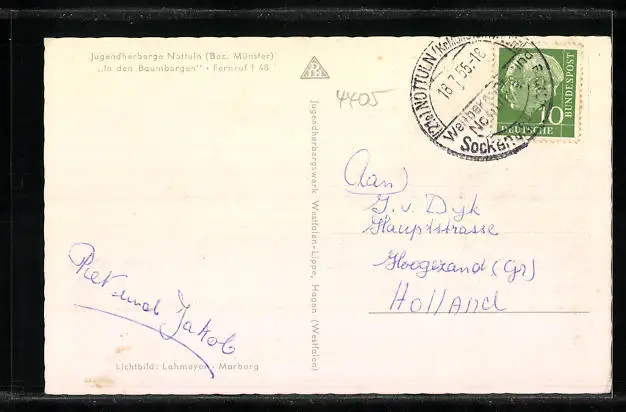 Jugendherberge Nottuln (Bez. Münster)
„In den Baumbergen" · Fernruf 1 48
DJH
4405
(21a) NOTTULN
18.7.55-18
Weltbekannt
Socken
10
DEUTSCHE
BUNDESPOST
Jugendherbergswerk Westfalen-Lippe, Hagen (Westfalen)
(Aan)
G. v. Dijk
Hauptstrasse
Hoogezand (Gr)
Holland
Piet und Jakob
Lichtbild: Lohmeyer · Marburg